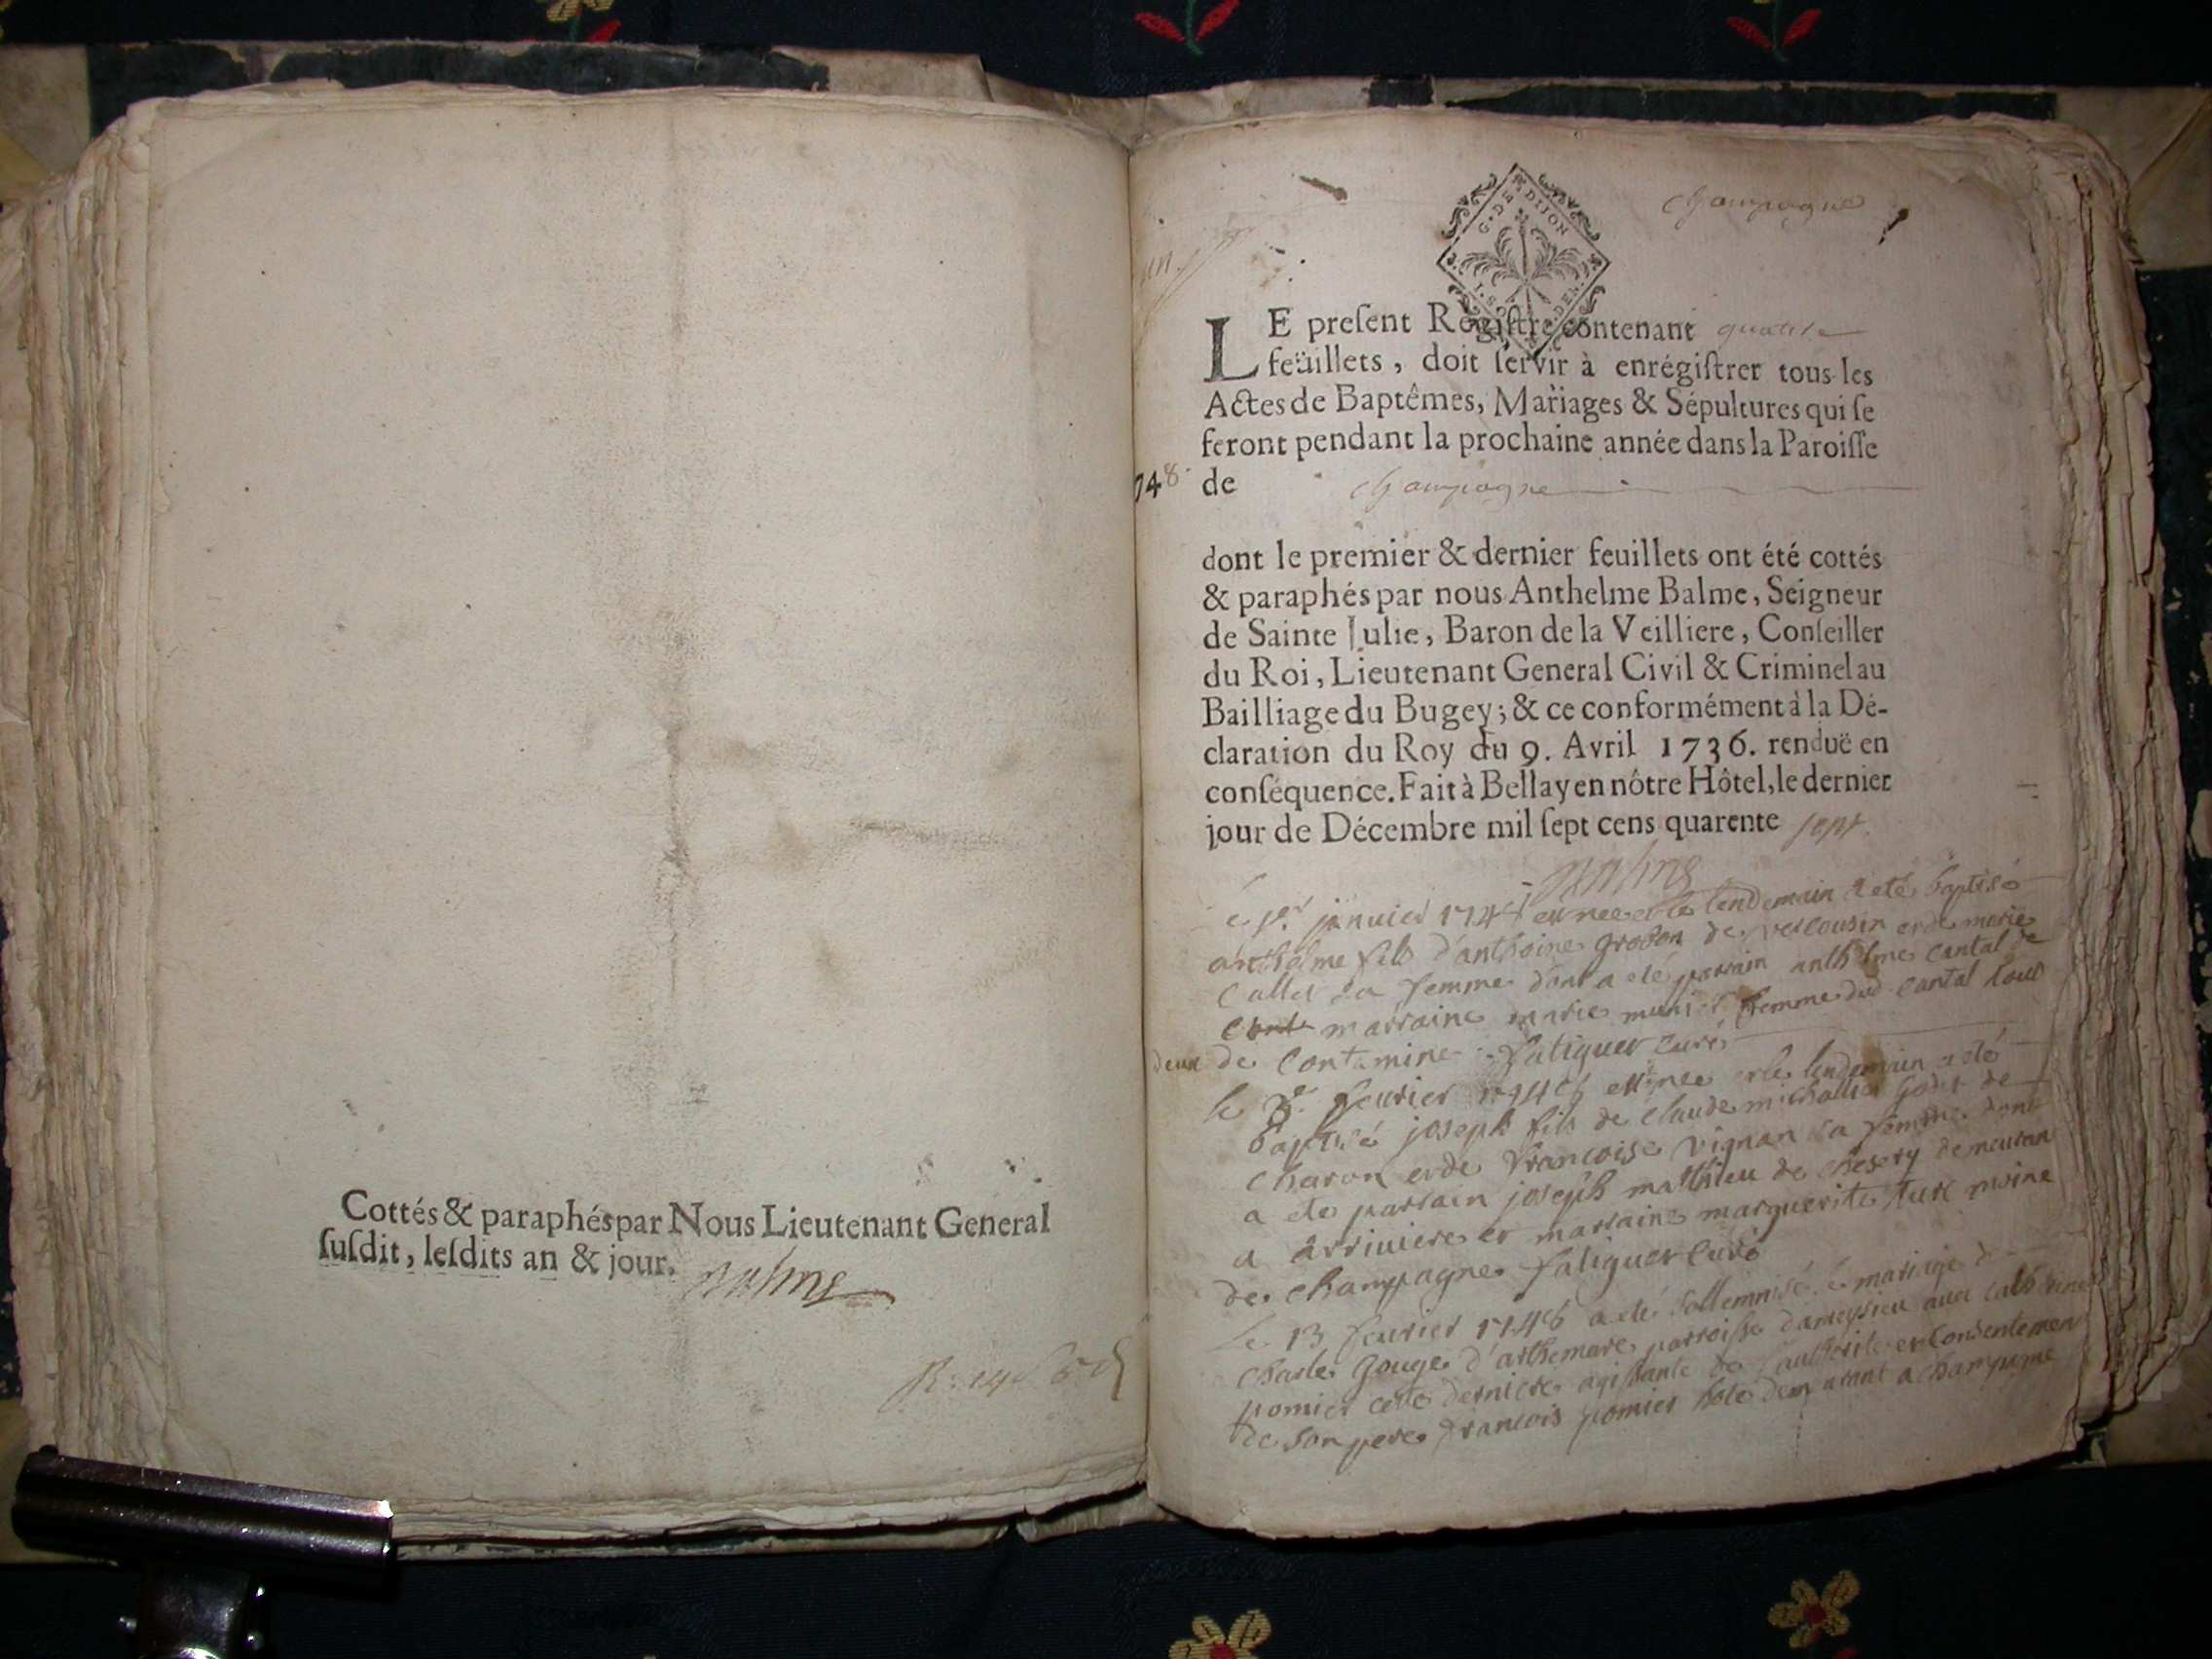 Cottés & paraphés par Nous Lieutenant General
ſuſdit, leſdits an & jour.
Balme
champagne
G. DE DIJON
LE preſent Regiſtre contenant quatre
feüillets, doit ſervir à enrégiſtrer tous les
Actes de Baptêmes, Mariages & Sépultures qui ſe
feront pendant la prochaine année dans la Paroiſſe
748 de champagne
dont le premier & dernier feuillets ont été cottés
& paraphés par nous Anthelme Balme, Seigneur
de Sainte Julie, Baron de la Veilliere, Conſeiller
du Roi, Lieutenant General Civil & Criminel au
Bailliage du Bugey; & ce conformément à la Dé-
claration du Roy du 9. Avril 1736. renduë en
conſéquence. Fait à Bellay en nôtre Hôtel, le dernier
jour de Décembre mil ſept cens quarente sept.
Balme
janvier est nee et le lendemain a eté baptisé
anthelme fils d'anthoine grobon de vercousin et de marie
callet sa femme dont a eté parrain anthelme cantal de
marraine marie munier femme dud cantal tous
deux de contamine faliguer curé
le fevrier 1748 est nee et le lendemain a eté
baptisé joseph fils de claude michallet de
charon et de francoise vignan sa femme dont
a ete parrain joseph matthieu de chesery demeurant
a arriviere et marraine marguerite moine
de champagne faliguer curé
le 13 fevrier 1748 a eté sollemnisé le mariage de
charles gouge d'arthemare parroisse d'ameysieu avec catherine
pomier cette derniere agissante de l'authorite et consentement
de son pere francois pomier hote demeurant a champagne